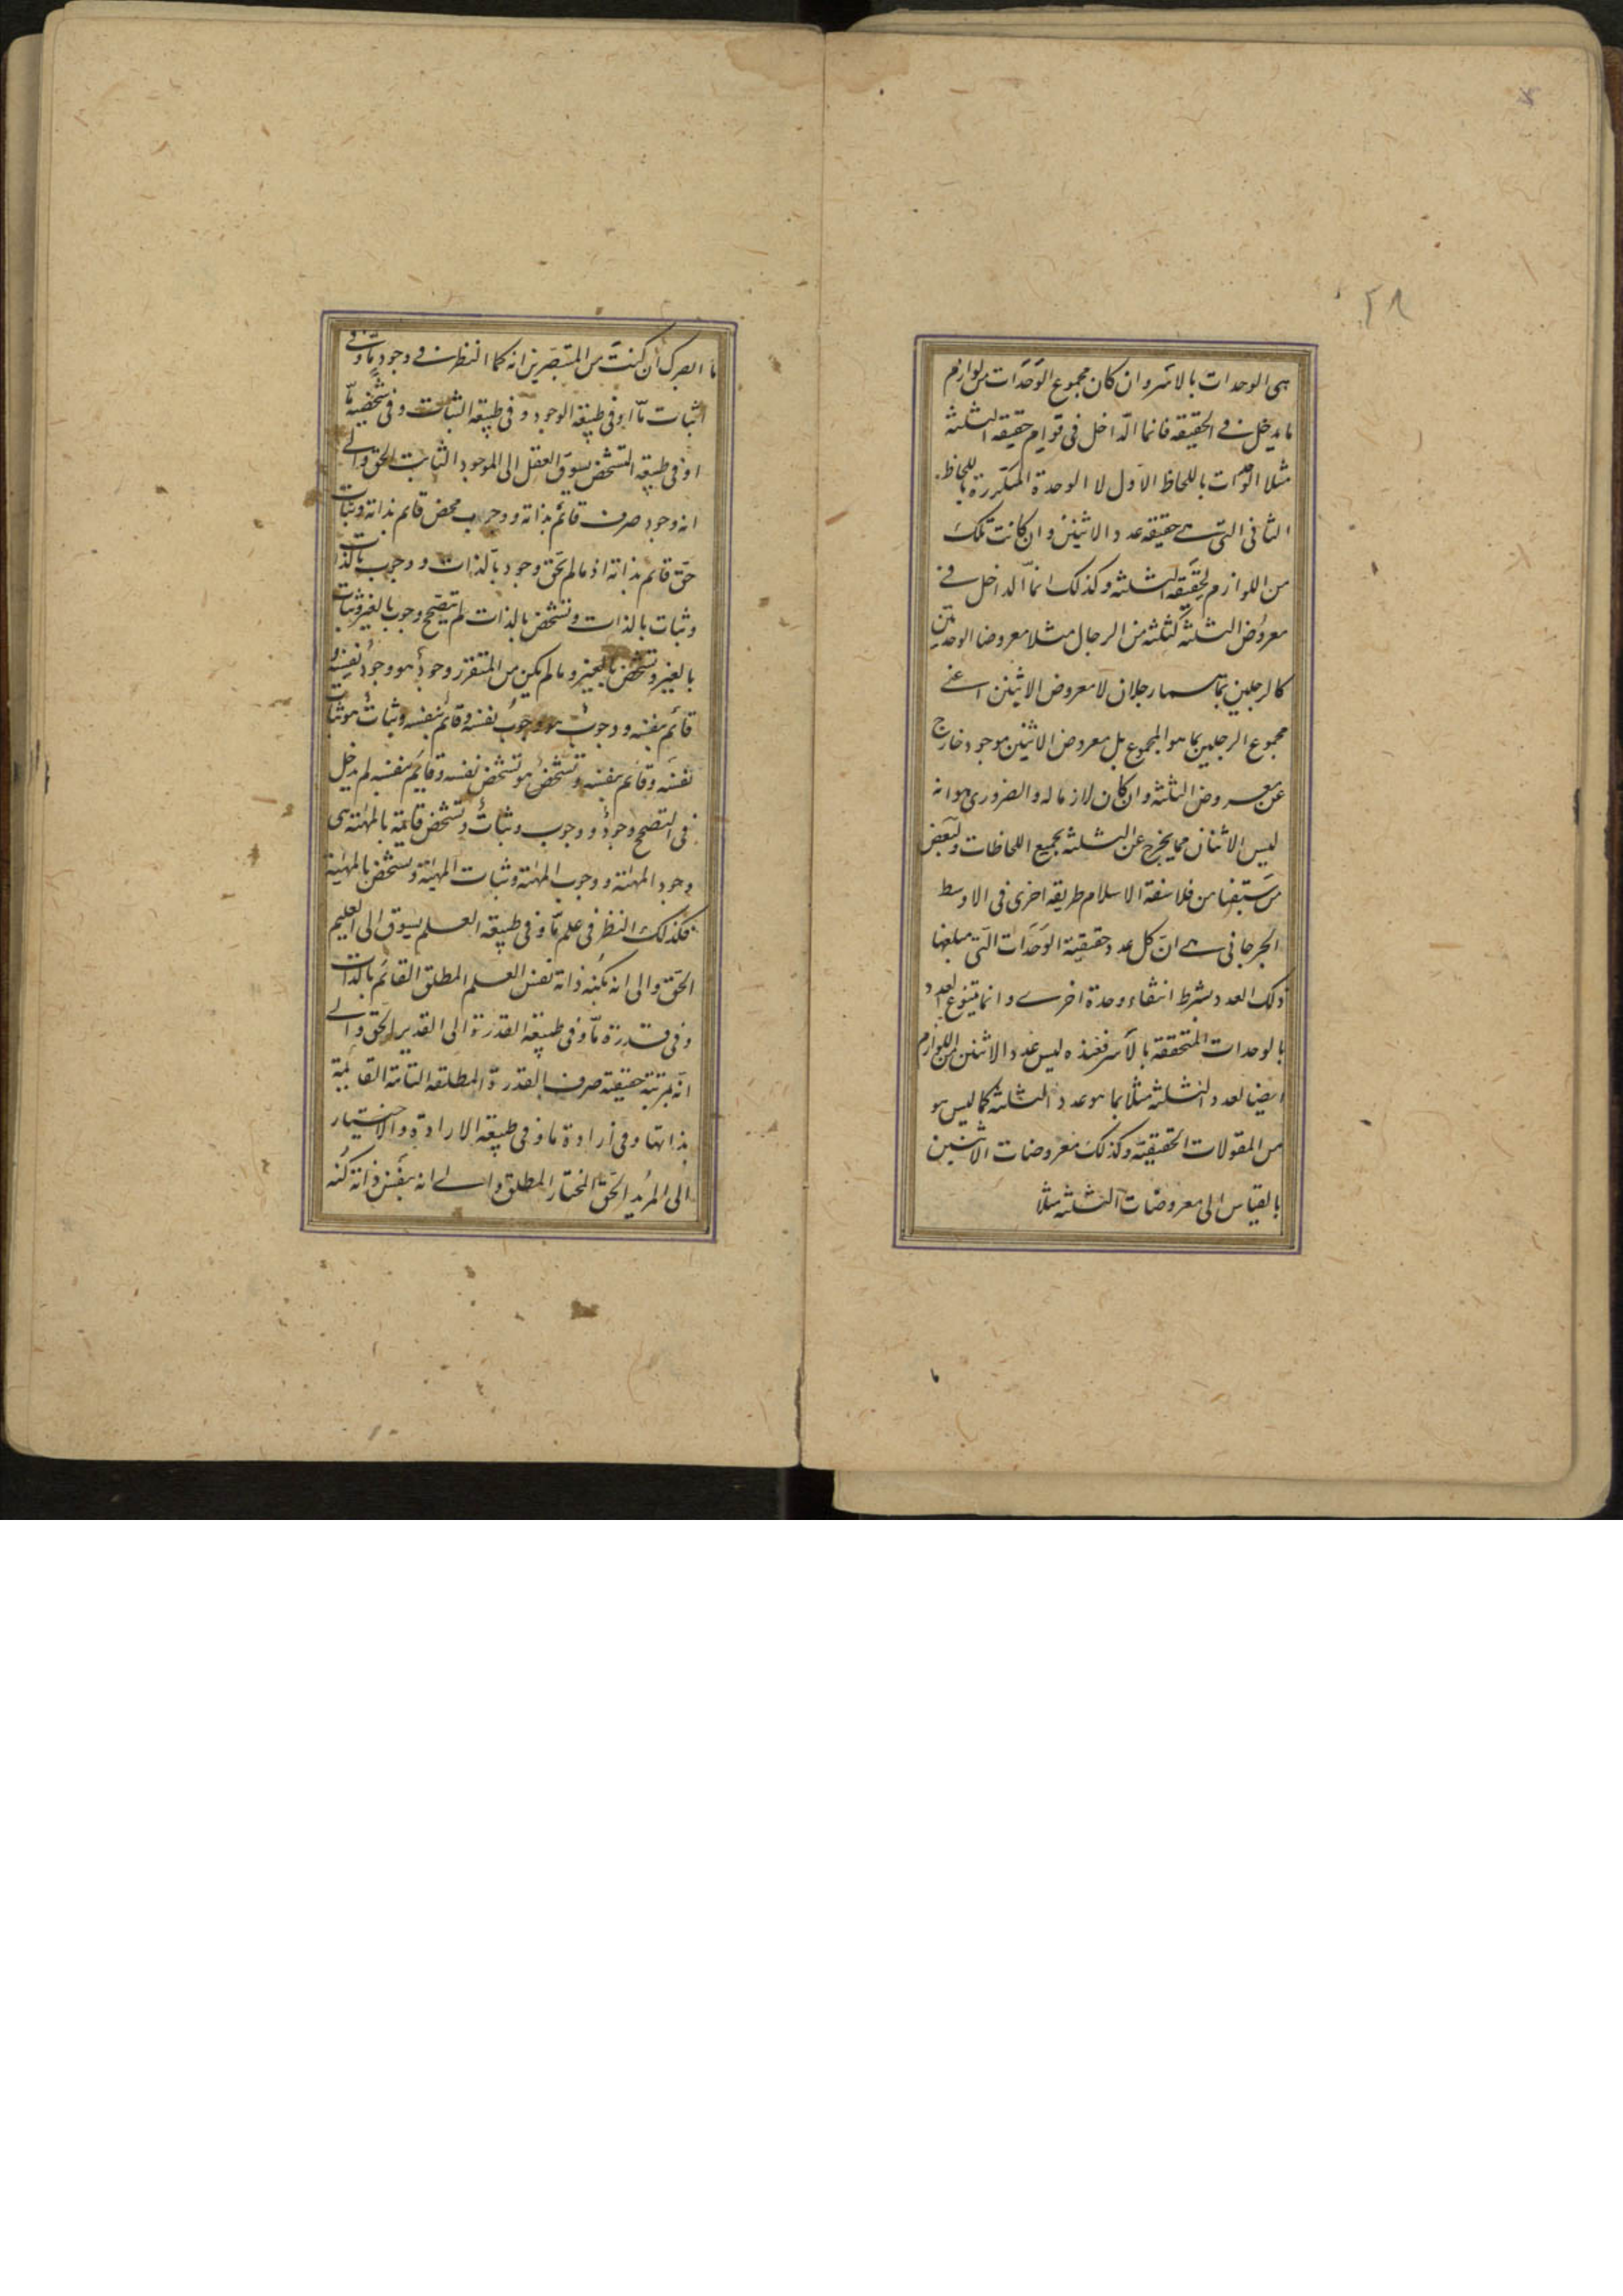 ٢٨
هى الوحدات بالاسر وان كان مجموع الوحدات من لوازم
ما يدخل فى الحقيقة فانما الداخل فى قوام حقيقة الثلثة
مثلا الوحدات باللحاظ الاول لا الوحدة المتكررة باللحاظ
الثانى التى هى حقيقة عدد الاثنين وان كانت تلك
من اللوازم لحقيقة الثلثة وكذلك انما الداخل فى
معروض الثلثة كثلثة من الرجال مثلا معروضا الوحدتين
كالرجلين بما هما رجلان لا معروض الاثنين اعنى
مجموع الرجلين بما هو المجموع بل معروض الاثنين موجود خارج
عن معروض الثلثة وان كان لازما له والضرورى هو انه
ليس الاثنان مما يخرج عن الثلثة بجميع اللحاظات ولبعض
من سبقنا من فلاسفة الاسلام طريقة اخرى فى الاوسط
الجرجانى هى ان كل عدد حقيقية الوحدات التى مبلغها
ذلك العدد بشرط انتفاء وحدة اخرى وانما يتنوع العدد
بالوحدات المتحققة بالاسر فعنده ليس عدد الاثنين من اللوازم
ايضا لعدد الثلثة مثلا بما هو عدد الثلثة كما ليس هو
من المقولات الحقيقية وكذلك معروضات الاثنين
بالقياس الى معروضات الثلثة مثلا
ما ابصرك ان كنت من المتبصرين انه كما النظر فى وجود ما وفى
ثبات ما او فى طبيعة الوجود وفى طبيعة الثبات وفى شخصية ما
او فى طبيعة التشخص يسوق العقل الى الموجود الثابت الحق والى
انه وجود صرف قائم بذاته ووجوب محض قائم بذاته وثبات
حق قائم بذاته اذ ما لم يحق وجود بالذات ووجوب بالذات
وثبات بالذات وتشخص بالذات لم يتصحح وجوب بالغير وثبات
بالغير وتشخص بالغير وما لم يكن من المتقرر وجود هو وجود نفسه و
قائم بنفسه ووجوب هو وجوب نفسه وقائم بنفسه وثبات هو ثبات
نفسه وقائم بنفسه وتشخص هو تشخص نفسه وقائم بنفسه لم يدخل
فى التصحح وجود ووجوب وثبات وتشخص قائمة بالمهية هى
وجود المهية ووجوب المهية وثبات المهية وتشخص بالمهية
فكذلك النظر فى علم ما وفى طبيعة العلم يسوق الى العليم
الحق والى انه بكنه ذاته نفس العلم المطلق القائم بالذات
وفى قدرة ما وفى طبيعة القدرة الى القدير الحق والى
انه بمرتبة حقيقته صرف القدرة المطلقة التامة القائمة
بذاتها وفى ارادة ما وفى طبيعة الارادة والاختيار
الى المريد الحق المختار المطلق والى انه بنفس ذاته كنه